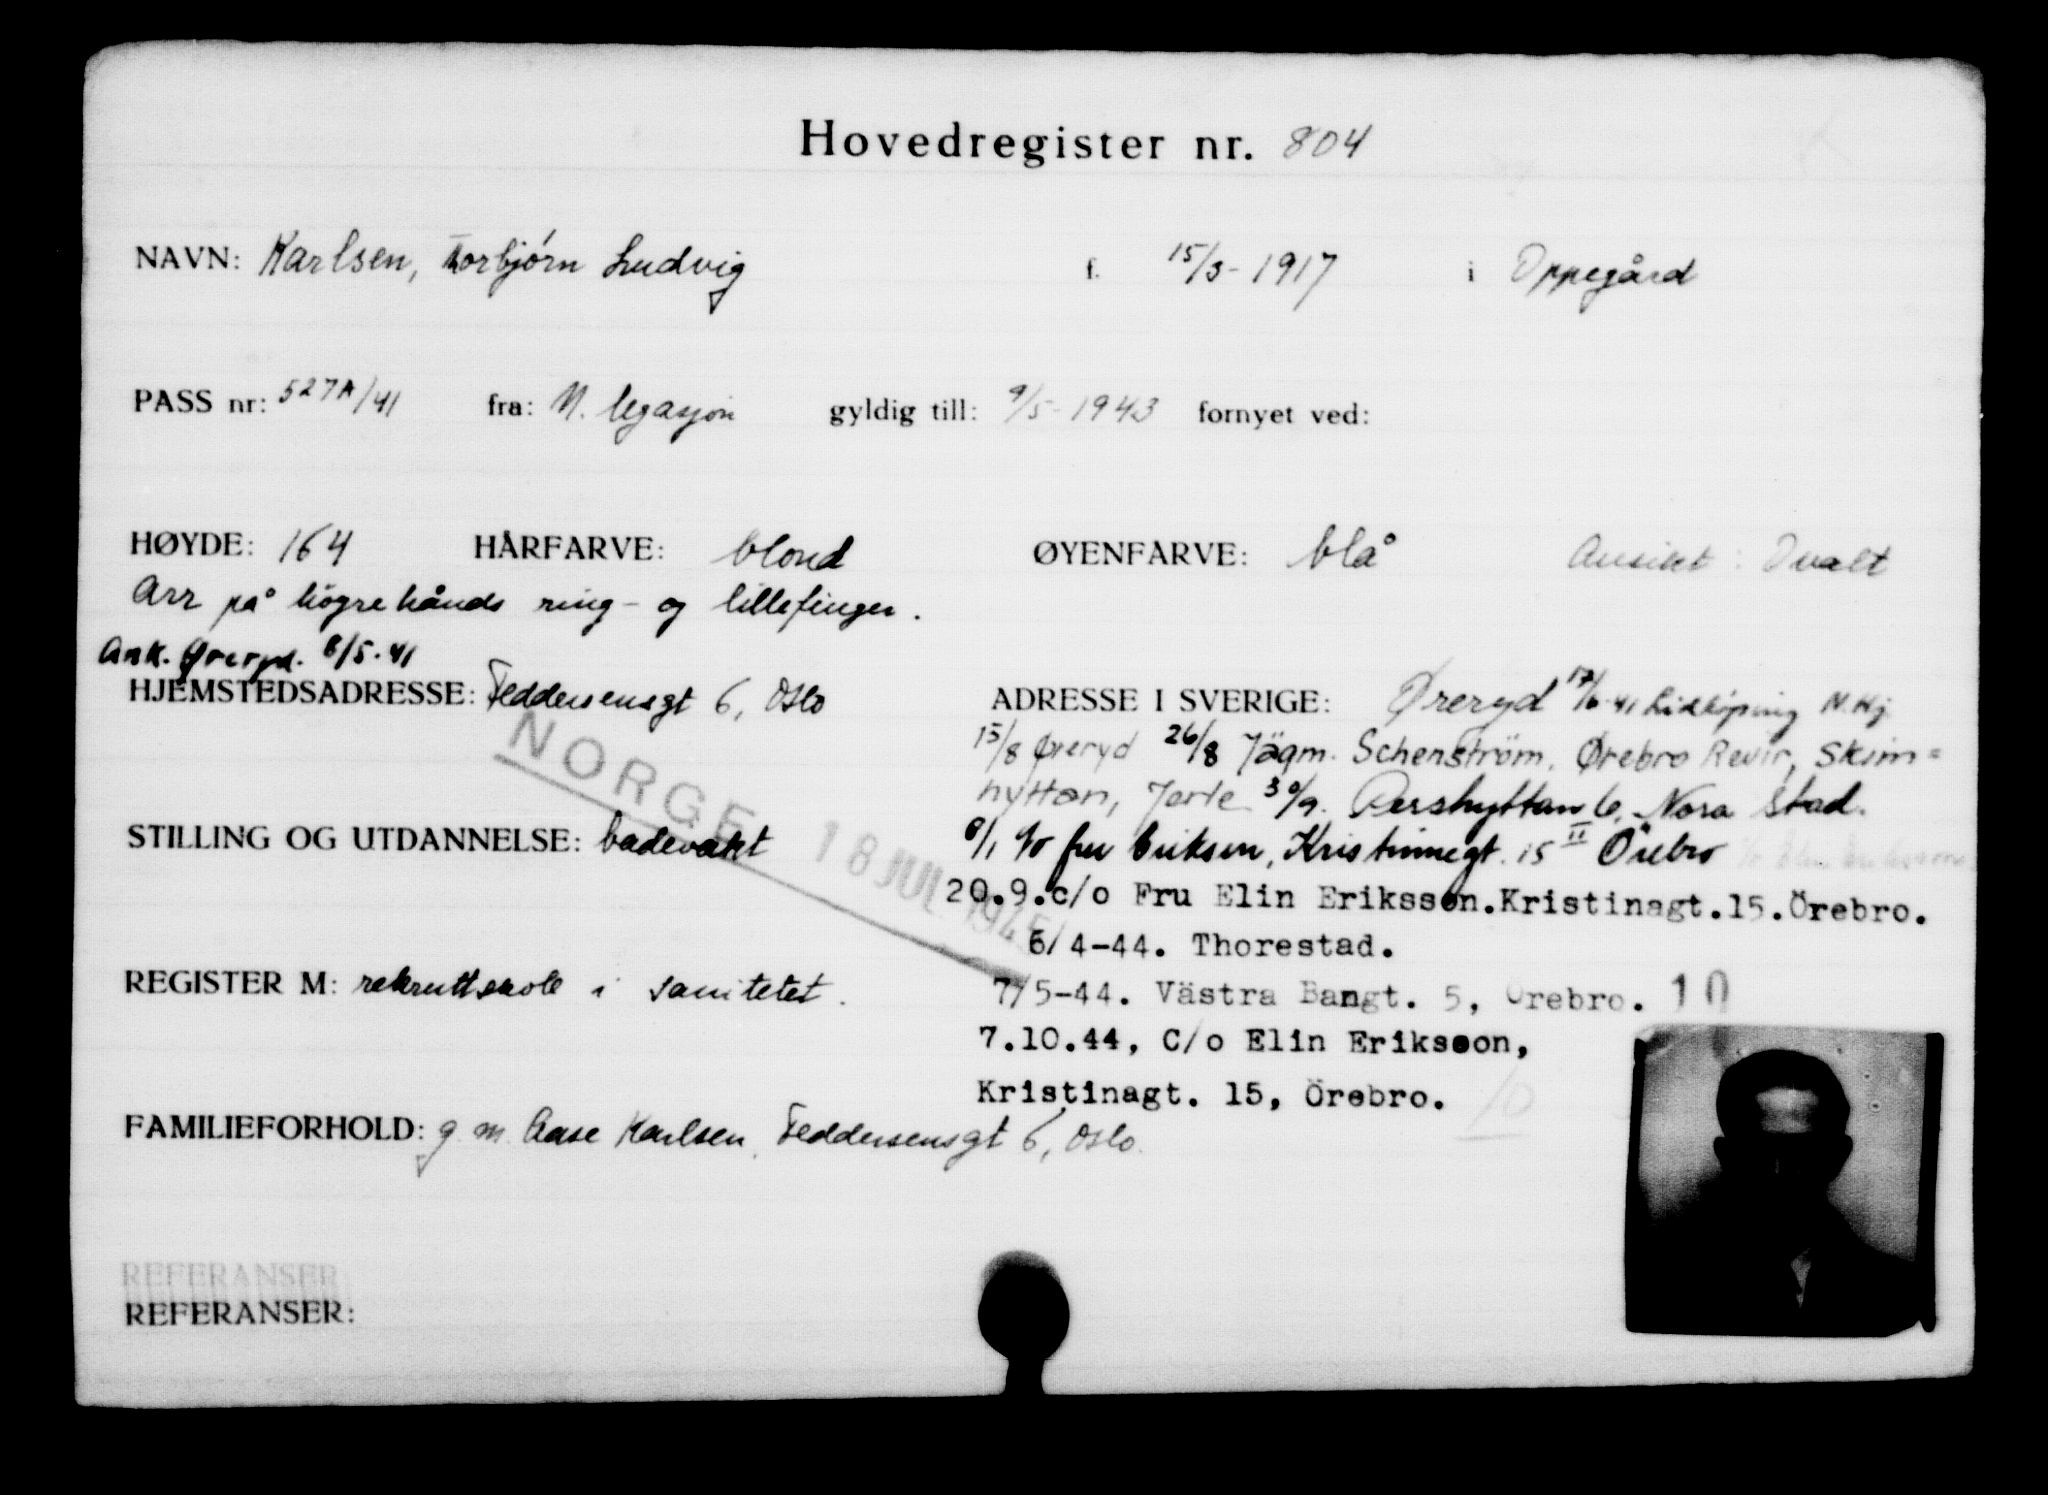 Hovedregister nr. 804
NAVN: Karlsen, Torbjørn Ludvig f. 15/3-1917 i Oppegård
PASS nr: 527A/41 fra: N. legasjon gyldig till: 9/5-1943 fornyet ved:
HØYDE: 164 HÅRFARVE: blond ØYENFARVE: blå Ansikt: Ovalt
Arr på högre hånds ring- og lillefinger.
Ank. Øreryd. 8/5.41
HJEMSTEDSADRESSE: Feddersensgt 6, Oslo
ADRESSE I SVERIGE: Øreryd 17/6-41 Lidköping N.Hj.
15/8 Øreryd 26/8 Jägm. Schenström, Ørebro Revir, Skim=
hyttan, Jerle 30/9. Pershyttan 6, Nora Stad.
STILLING OG UTDANNELSE: badevakt
8/1 c/o fru Eriksen, Kristinnegt. 15 II Örebro
NORGE 18 JUL 1945
20.9.c/o Fru Elin Eriksson.Kristinagt.15.Örebro.
6/4-44. Thorestad.
REGISTER M: rekruttskole i sanitetet.
7/5-44. Västra Bangt. 5, Örebro. 10
7.10.44, C/o Elin Eriksson,
Kristinagt. 15, Örebro. 10
FAMILIEFORHOLD: g. m. Aase Karlsen, Feddersensgt 6, Oslo.
REFERANSER
REFERANSER: